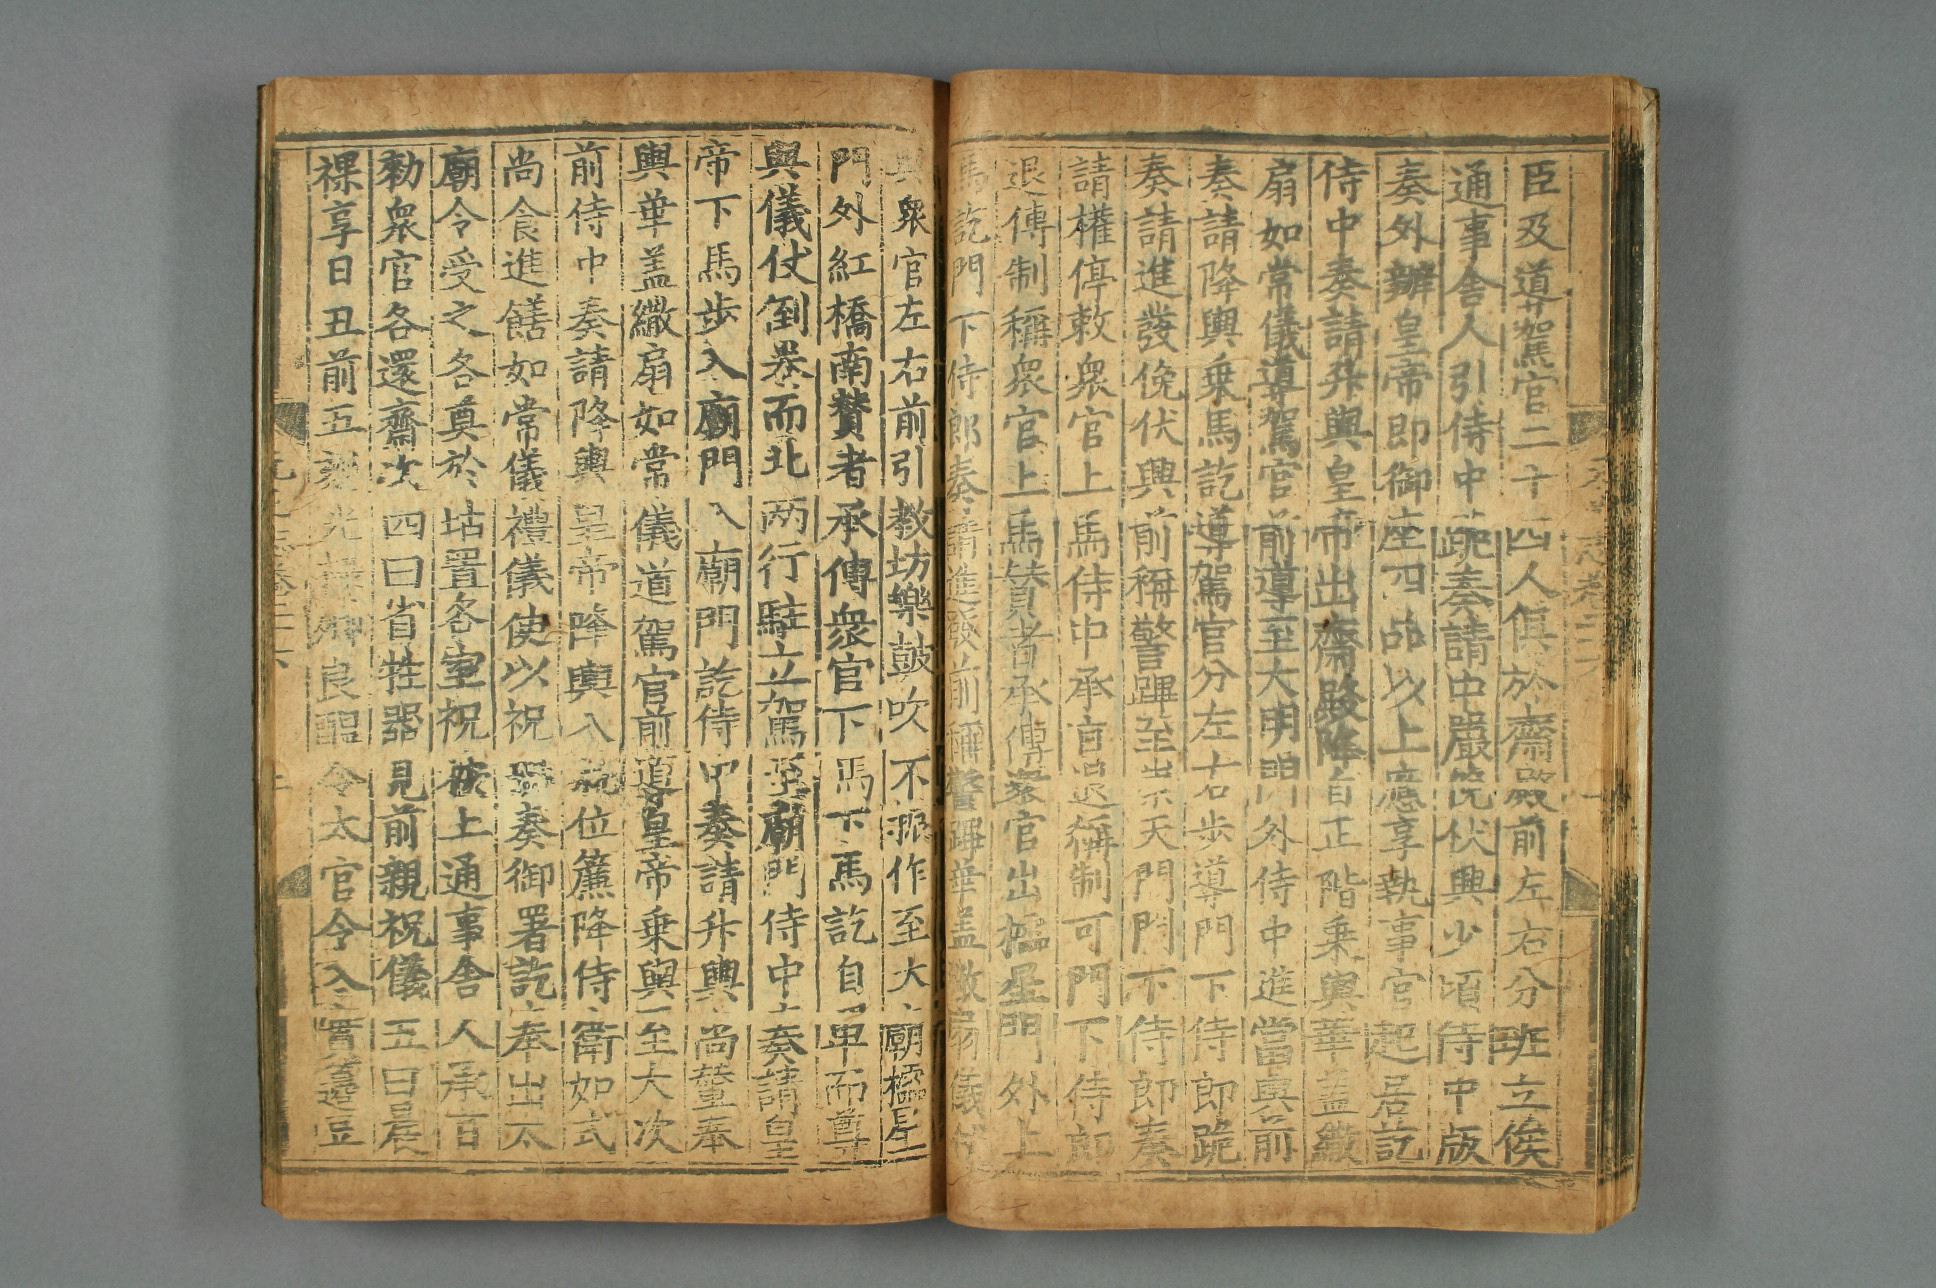 臣及導駕官二十四人俱於齋殿前左右分班立俟
通事舍人引侍中跪奏請中嚴俛伏興少頃侍中版
奏外辦皇帝即御座四品以上應享執事官起居訖
侍中奏請升輿皇帝出齋殿降自正階乘輿華蓋繖
扇如常儀導駕官前導至大明門外侍中進當輿前
奏請降輿乘馬訖導駕官分左右步導門下侍郎跪
奏請進發俛伏興前稱警蹕至崇天門門下侍郎奏
請權停敕眾官上馬侍中承旨退稱制可門下侍郎
退傳制稱眾官上馬贊者承傳眾官出櫺星門外上
馬訖門下侍郎奏請進發前稱警蹕華蓋繖扇儀仗
與眾官左右前引教坊樂鼓吹不振作至大廟櫺星
門外紅橋南贊者承傳眾官下馬下馬訖自卑而尊
與儀仗倒卷而北兩行駐立駕至廟門侍中奏請皇
帝下馬步入廟門入廟門訖侍中奏請升輿尚輦奉
輿華蓋繖扇如常儀道駕官前導皇帝乘輿至大次
前侍中奏請降輿皇帝降輿入就位簾降侍衛如式
尚食進饍如常儀禮儀使以祝冊奏御署訖奉出太
廟令受之各奠於坫置各室祝案上通事舍人承旨
勑眾官各還齋次四曰省牲器見前親祝儀五曰晨
祼享日丑前五刻光祿卿良醞令太官令入實籩豆
元史志卷二十六